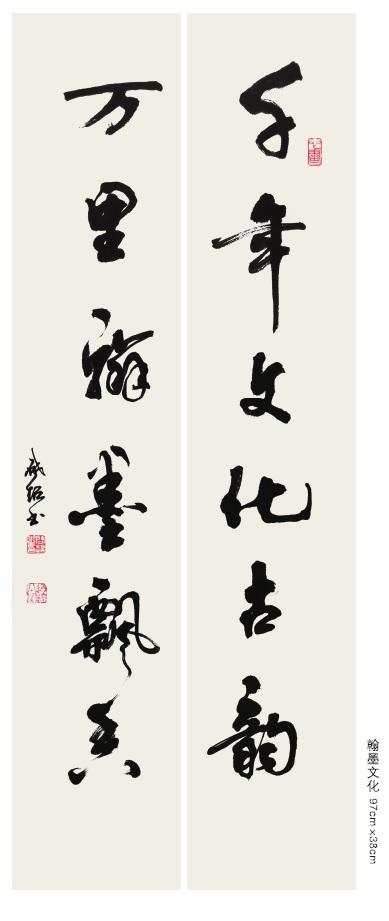 千年文化古韵
万里翰墨飘香
翰墨文化 97cm×38cm